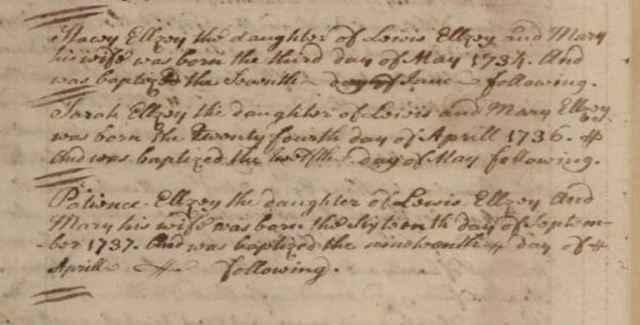 Stacy Ellzey the daughter of Lewis Ellzey and Mary
his wife was born the third day of May 1734. And
was baptized the Seventh day of June following.
Sarah Ellzey the daughter of Lewis and Mary Ellzey
was born the twenty fourth day of Aprill 1736.
And was baptized the twelfth day of May following.
Patience Ellzey the daughter of Lewis Ellzey And
Mary his wife was born the sixteenth day of Septem-
-ber 1737. And was baptized the day of
Aprill following.